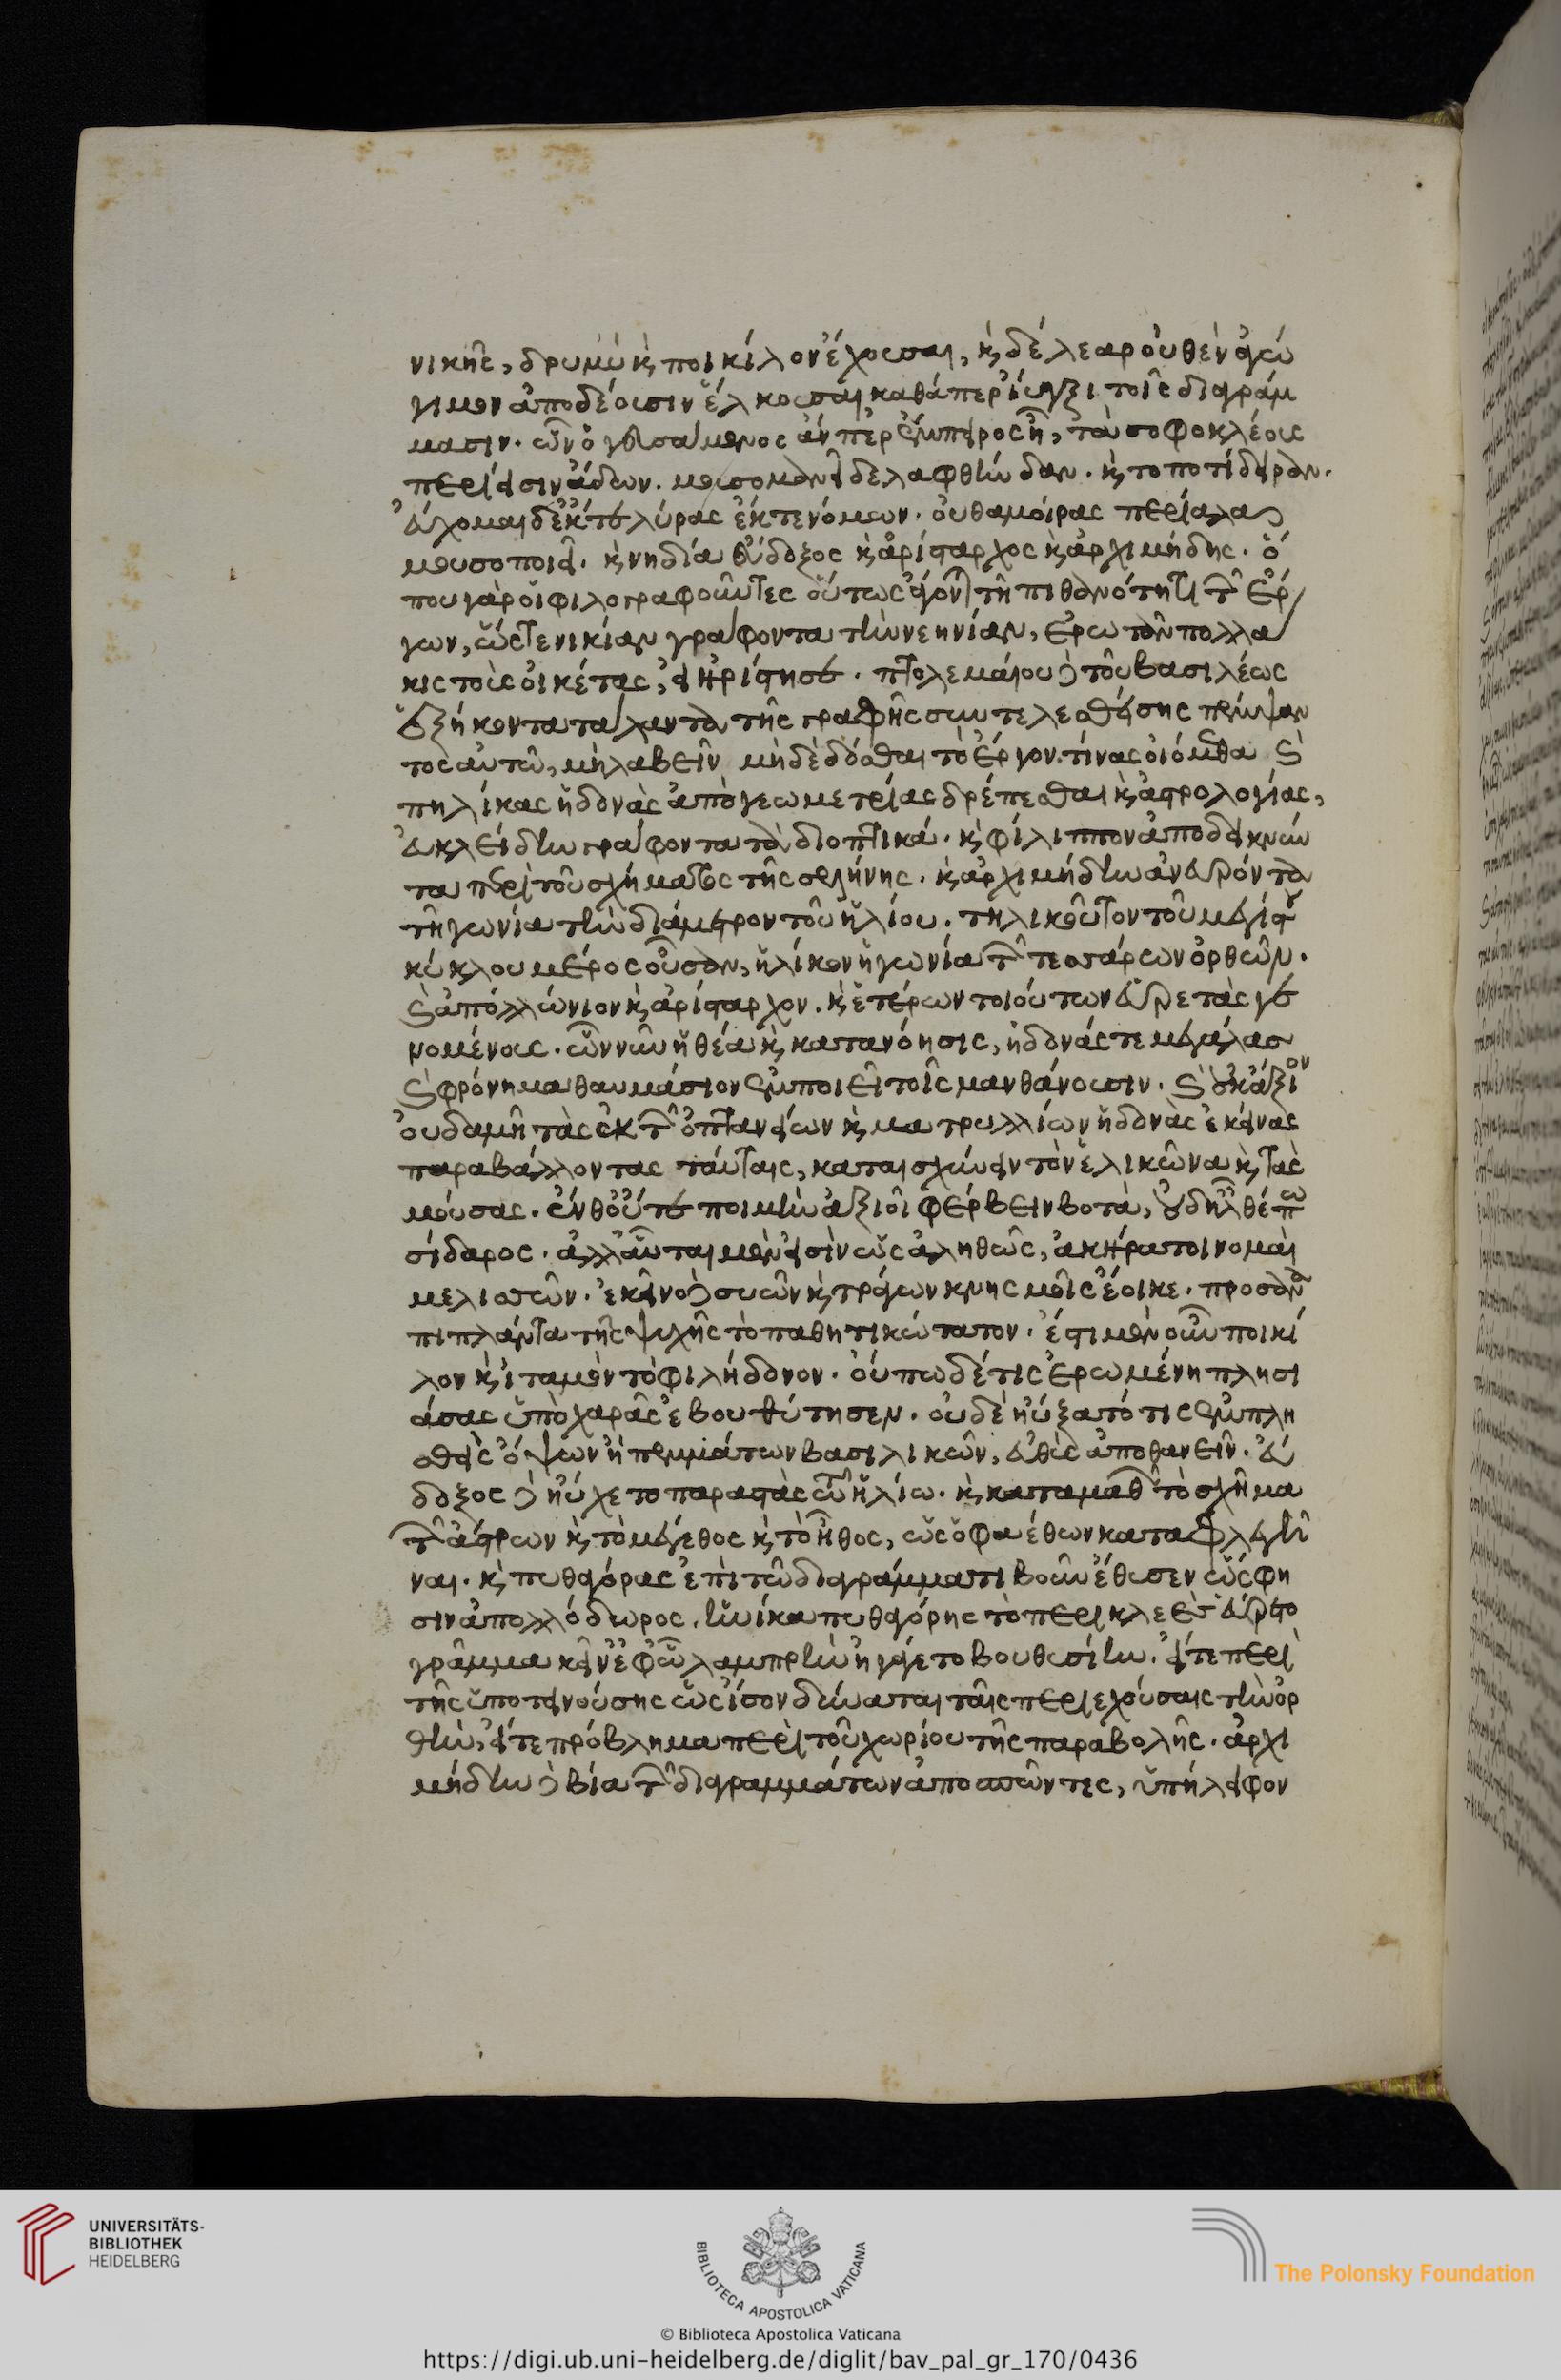 νικῆς, δρυμὺ κ̀ ποικίλον ἔχουσαι, κ̀ δέλεαρ οὐθὲν ἀγώ
γιμον ἀποδέουσιν ἕλκουσαι καθάπερ ἴυγξι τοῖς διαγράμ
μασιν. ὧν ὁ γευσάμενος ἄν περ ἔμπειρος ἦ, τὰ σοφοκλέους
περίεισιν ἄδων. μουσομανεῖ δε λαφθὴν δαν. κ̀ το ποτίδειραν.
εὔχομαι δ' ἔκ τε λύρας ἔκ τε νόμων. οὐ θαμοίρας περίαλας
μουσοποιεῖ. κ̀ νηδία εὔδοξος κ̀ ἀρίσταρχος κ̀ ἀρχιμήδης. ὅ
που γὰρ οἱ φιλογραφοῦντες οὕτως ἄγονται τῇ πιθανότητι τῶν ἔρ
γων, ὥστε νικίαν γράφοντα τὴν νεηνίαν, ἐρωτᾶν πολλά
κις τοὺς οἰκέτας, εἰ ἠρίστησε. πτολεμαίου δὲ τοῦ βασιλέως
ἑξήκοντα τάλαντα τῆς γραφῆς συντελεσθείσης πέμψαν
τος αὐτῶ, μὴ λαβεῖν μηδὲ δόσθαι τὸ ἔργον. τίνας οἰόμεθα καὶ
πηλίκας ἡδονὰς ἀπὸ γεωμετρίας δρέπεσθαι κ̀ ἀστρολογίας,
εὐκλείδην γράφοντα τὰ διοπτικά. κ̀ φίλιππον ἀποδεικνύν
τα περὶ τοῦ σχήματος τῆς σελήνης. κ̀ ἀρχιμήδην ἀνευρόντα
τῆ γωνία τὴν διάμετρον τοῦ ἡλίου. τηλικοῦτον τοῦ μεγίστου
κύκλου μέρος οὖσαν, ἡλίκον ἡ γωνία τῶν τεσσάρων ὀρθῶν.
καὶ ἀπολλώνιον κ̀ ἀρίσταρχον. κ̀ ἑτέρων τοιούτων εὑρετὰς γε
νομένους. ὧν νῦν ἡ θέα κ̀ κατανόησις, ἡδονάς τε μεγάλας
καὶ φρόνημα θαυμάσιον ἐμποιεῖ τοῖς μανθάνουσιν. καὶ οὐκ ἄξιον
οὐδαμῆ τὰς ἐκ τῶν ὀπτανείων κ̀ ματρυλλίων ἡδονὰς ἐκείνας
παραβάλλοντας ταύταις, καταισχύνειν τὸν ἑλικῶνα κ̀ τὰς
μούσας. ἔνθ' οὔτε ποιμὴν ἀξιοῖ φέρβειν βοτὰ, οὐδ' ἦλθέ πω
σίδαρος. ἀλλ' αὗται μέν εἰσιν ὡς ἀληθῶς, ἀκήρατοι νομαὶ
μελισσῶν. ἐκεῖνο δὲ συῶν κ̀ τράγων κνησμοῖς ἔοικε. προσαν
πιπλάντα τῆς ψυχῆς τὸ παθητικώτατον. ἔστι μὲν οὖν ποικί
λον κ̀ ἰταμὸν τὸ φιλήδονον. οὔπω δέ τις ἐρωμένη πλησι
άσας ὑπὸ χαρᾶς ἐβουθύτησεν. οὐδὲ ηὔξατό τις ἐμπλη
σθεὶς ὄψων ἢ πεμμάτων βασιλικῶν, εὐθὺς ἀποθανεῖν. εὔ
δοξος δὲ ηὔχετο παραστὰς τῶ ἡλίω. κ̀ καταμαθεῖν τὸ σχῆμα
τῶν ἄστρων κ̀ τὸ μέγεθος κ̀ τὸ ἦθος, ὡς ὁ φαέθων καταφλεγῆ
ναι. κ̀ πυθαγόρας ἐπὶ τῶ διαγράμματι βοῦν ἔθυσεν ὥς φη
σιν ἀπολλόδωρος. ἡνίκα πυθαγόρης τὸ περικλεὲς εὕρετο
γράμμα κεῖν' ἐφ' ὧ λαμπρὴν ἠγάγετο βουθυσίην. εἴτε περὶ
τῆς ὑποτεινούσης ὡς ἴσον δύναται ταῖς περιεχούσαις τὴν ὀρ
θὴν, εἴτε πρόβλημα περὶ τοῦ χωρίου τῆς παραβολῆς. ἀρχι
μήδην δὲ βία τῶν διαγραμμάτων ἀποσπῶντες, ὑπήλειφον
UNIVERSITÄTS-
BIBLIOTHEK
HEIDELBERG
BIBLIOTECA APOSTOLICA VATICANA
The Polonsky Foundation
© Biblioteca Apostolica Vaticana
https://digi.ub.uni-heidelberg.de/diglit/bav_pal_gr_170/0436